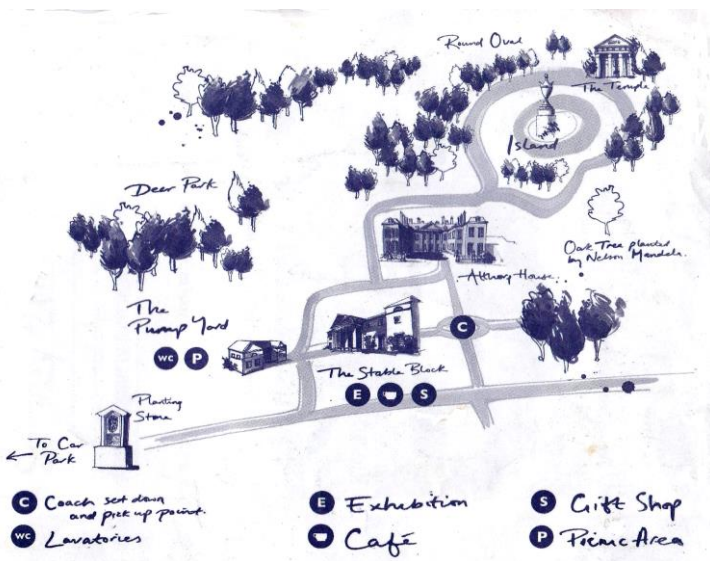 Round Oval
The Temple
Island
Deer Park
Oak Tree planted
by Nelson Mandela.
Althorp House.
The
Pump Yard
WC P
C
The Stable Block
E S
Planting
Stone
To Car
Park
C Coach set down
and pick up point.
WC Lavatories
E Exhibition
Café
S Gift Shop
P Picnic Area